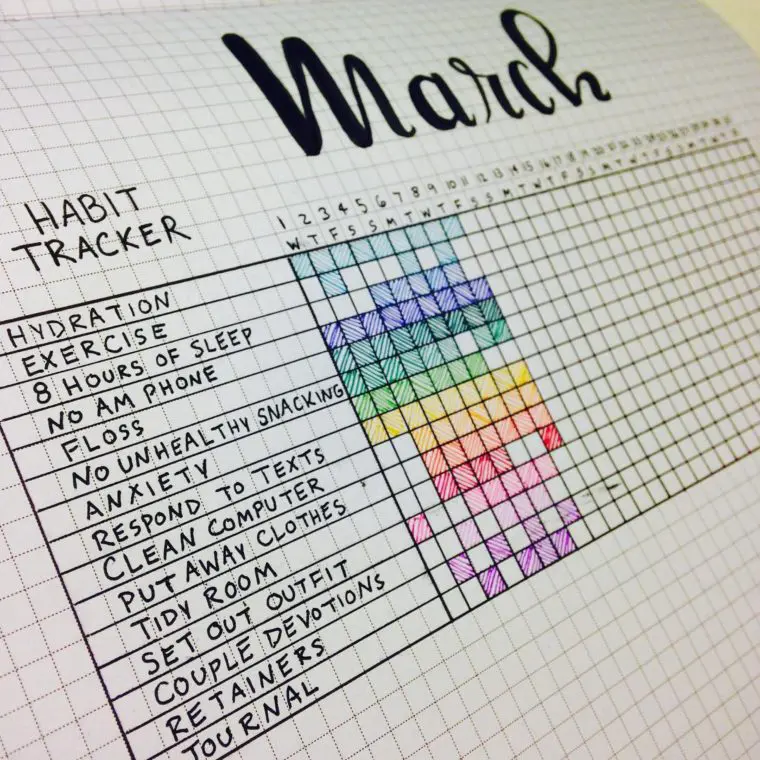 March
HABIT
TRACKER
1 2 3 4 5 6 7 8 9 10 11 12 13 14 15 16 17 18 19 20 21 22 23 24 25 26 27 28 29 30 31
W T F S S M T W T F S S M T W T F S S M T W T F S S M T W T F
HYDRATION
EXERCISE
8 HOURS OF SLEEP
NO AM PHONE
FLOSS
NO UNHEALTHY SNACKING
ANXIETY
RESPOND TO TEXTS
CLEAN COMPUTER
PUT AWAY CLOTHES
TIDY ROOM
SET OUT OUTFIT
COUPLE DEVOTIONS
RETAINERS
JOURNAL